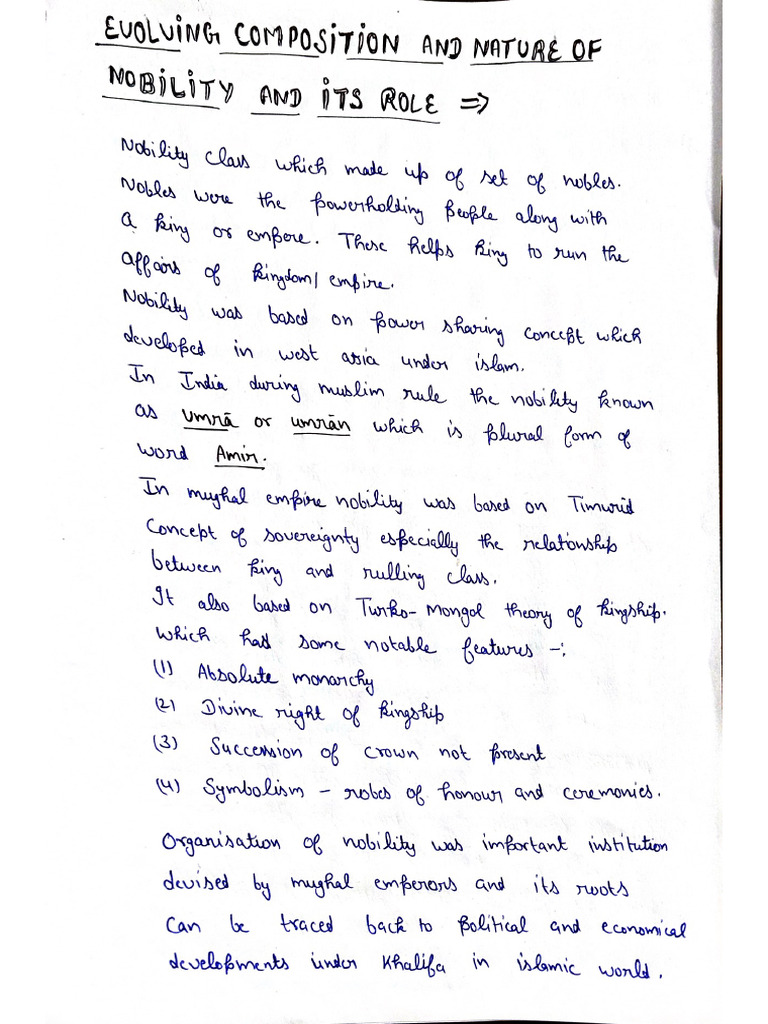 EVOLVING COMPOSITION AND NATURE OF
NOBILITY AND ITS ROLE ⇒
Nobility class which made up of set of nobles.
Nobles were the powerholding people along with
a king or empere. These helps king to run the
affairs of kingdom/empire.
Nobility was based on power sharing concept which
developed in west asia under islam.
In India during muslim rule the nobility known
as umrā or umrān which is plural form of
word Amir.
In mughal empire nobility was based on Timurid
concept of sovereignty especially the relationship
between king and rulling class.
It also based on Turko-Mongol theory of kingship.
which had some notable features -:
(1) Absolute monarchy
(2) Divine right of kingship
(3) Succession of crown not present
(4) Symbolism - robes of honour and ceremonies.
Organisation of nobility was important institution
devised by mughal emperors and its roots
can be traced back to political and economical
developments under Khalifa in islamic world.